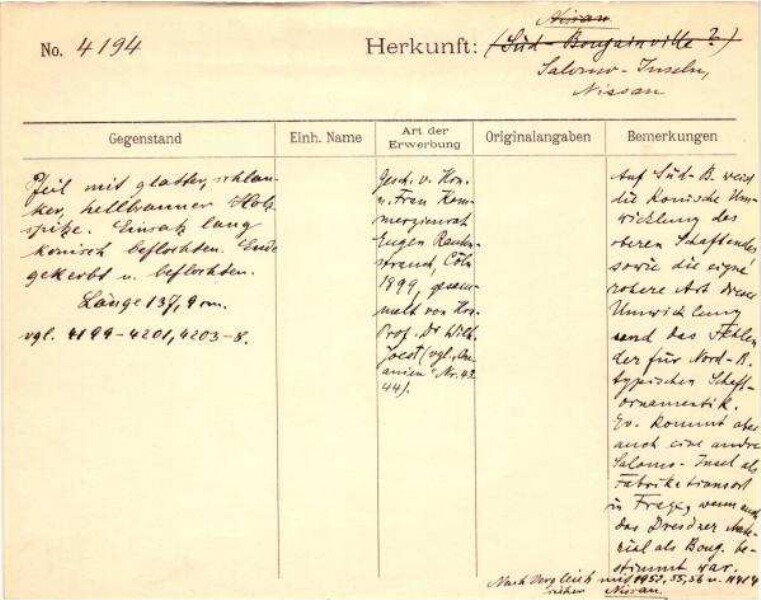 Nissan
No. 4194
Herkunft: (Süd-Bougainville?)
Salomo-Inseln,
Nissan
Gegenstand
Einh. Name
Art der Erwerbung
Originalangaben
Bemerkungen
Pfeil mit glatter, schlan-
ker, hellbrauner Holz-
spitze. Einsatz lang
konisch beflochten. Ende
gekerbt u. beflochten.
Länge 137,9 cm.
vgl. 4199-4201, 4203-8.
Gesch. v. Hrn.
u. Frau Kom-
merzienrat
Eugen Rauten-
strauch, Cöln
1899, gesam-
melt von Hrn.
Prof. Dr Wilh.
Joest (vgl. 
Nr. 43
44).
Auf Süd-B. weist
die konische Um-
wicklung des
oberen Schaftendes
sowie die
rohere Art dieser
Umwicklung
und das Fehlen
der für Nord-B.
typischen Schaft-
ornamentik.
Ev. kommt aber
auch eine andre
Salomo-Insel als
Fabrikationsort
in Frage, wenn auch
das Dresdner Mate-
rial als Boug. be-
stimmt war.
Nach Vergleich mit 1952, 55, 56 u. 11414
sicher Nissan.